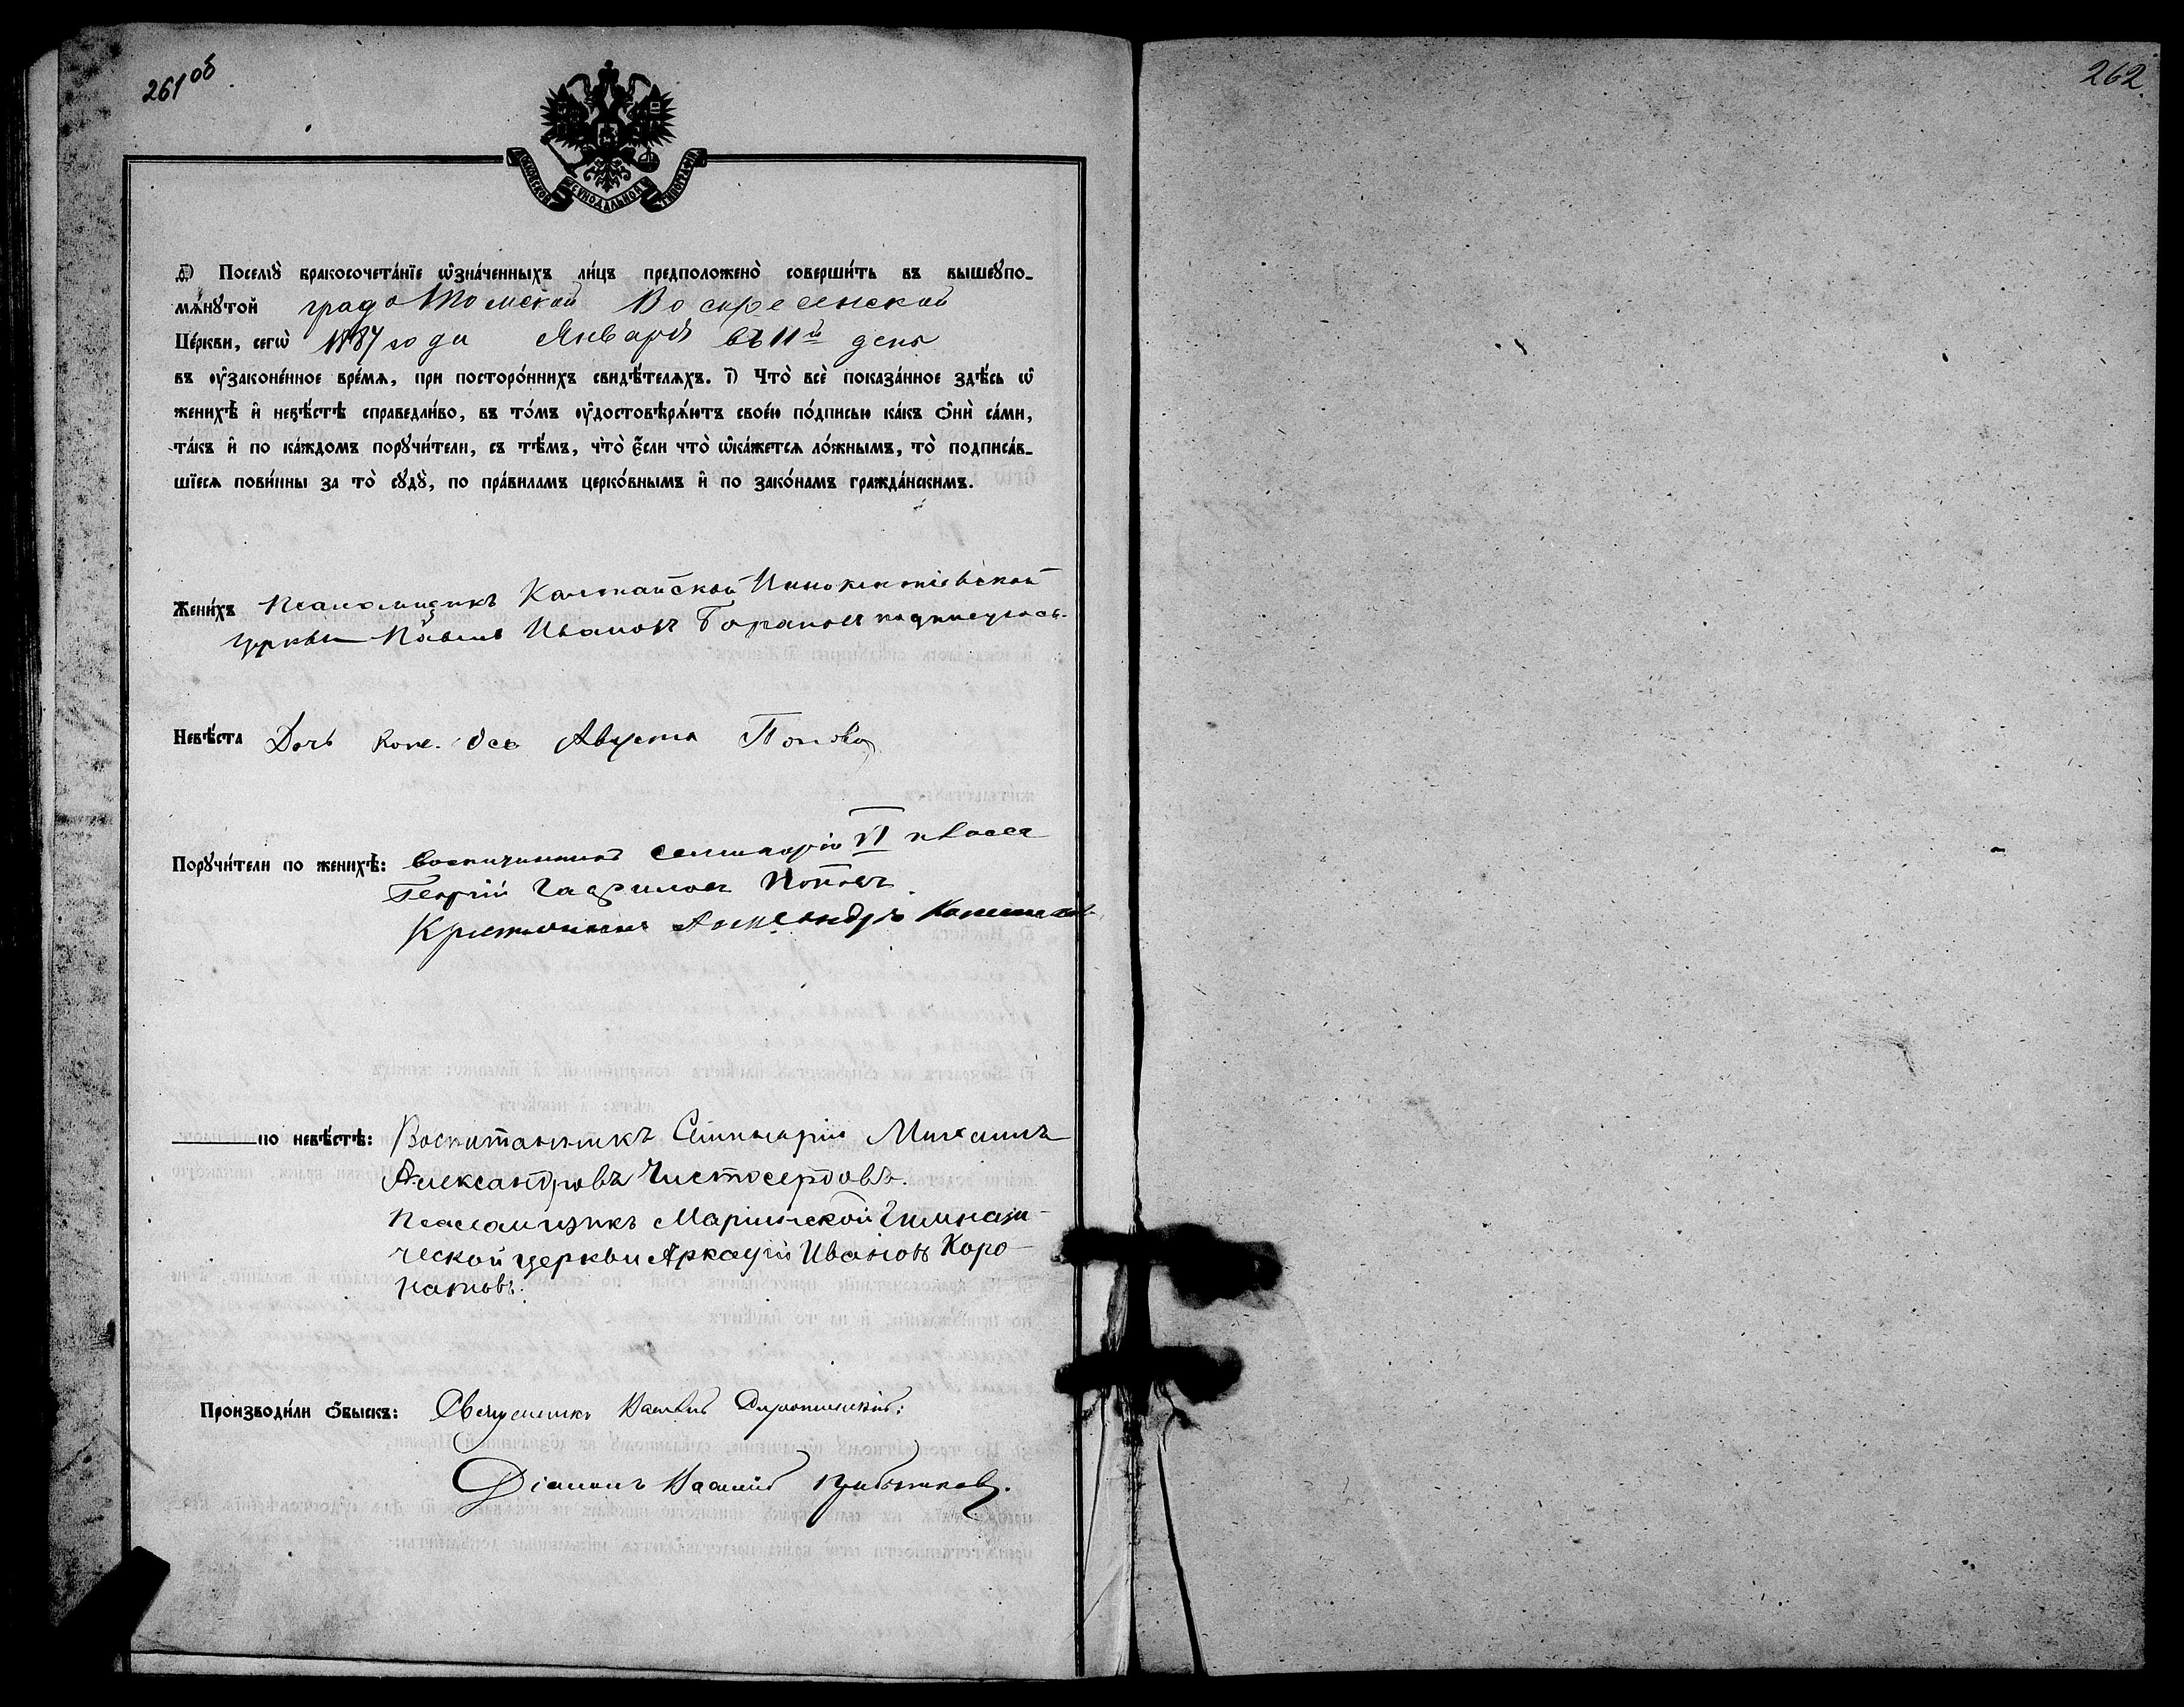 261об
262.
МОСКОВСКОЙ СѴНОДАЛЬНОЙ ТИПОГРАФІИ
д҃) Посемꙋ̀ бракосочета́нїе ѡ҆зна́ченныхъ ли́цъ предположено̀ соверши́ть въ вышеꙋпо-
мѧ́нꙋтой градо Томской Воскресенской
Це́ркви, сегѡ̀ 1887 года Января въ 11й день
въ ᲂу҆законе́нное вре́мѧ, при посторо́ннихъ свидѣ́телѧхъ. і҃) Что̀ всѐ показа́нное здѣ́сь ѡ҆
женихѣ̀ и҆ невѣ́стѣ справедли́во, въ то́мъ ᲂу҆достовѣрѧ́ютъ свое́ю по́дписью ка́къ ѻ҆нѝ са́ми,
та́къ и҆ по ка́ждомъ порꙋчи́тели, съ тѣ́мъ, что̀ є҆́сли что̀ ѡ҆ка́жетсѧ ло́жнымъ, то̀ подписа́в-
шїесѧ пови́нны за то̀ сꙋдꙋ̀, по пра́виламъ церко́внымъ и҆ по зако́намъ гражда́нскимъ.
Жени́хъ Псаломщикъ Калтайской Инокентіевской
церкви Павелъ Ивановъ подписуюсь.
Невѣ́ста Дочь Августа Попова
Порꙋчи́тели по женихѣ̀: воспитанникъ семинаріи VI класса
Георгій Гавриловъ Поповъ.
Крестьянинъ Александръ
по невѣ́стѣ: Воспитанникъ Семинаріи Михаилъ
Александровъ Чистосердовъ.
Псаломщикъ Маріинской Гимнази-
ческой церкви Аркадій Ивановъ Коро-
натовъ.
Производи́ли ѻ҆́быскъ: Священникъ
Діаконъ Василій